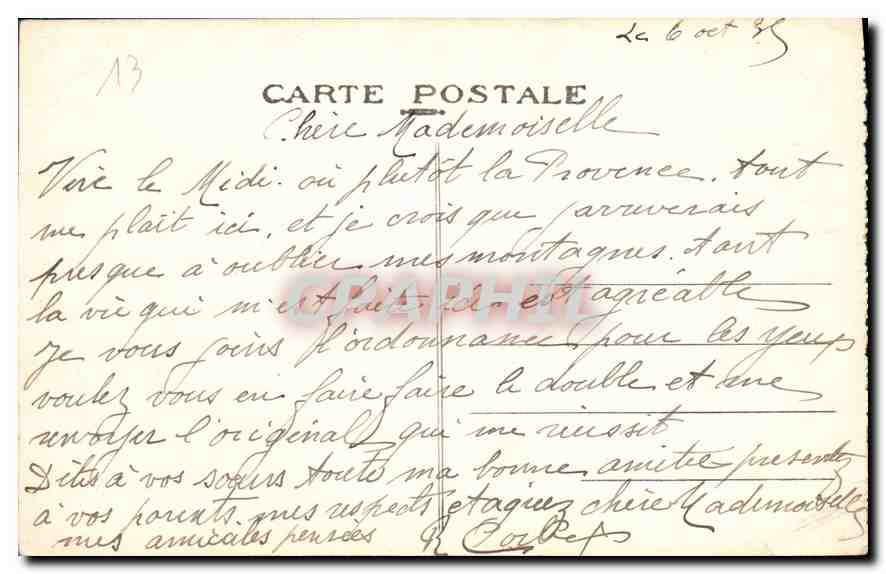 Le 6 oct 35
13
CARTE POSTALE
Chère Mademoiselle
Vive le Midi. ou plutôt la Provence. tout
me plaît ici, et je crois que j'arriverais
presque à oublier mes montagnes. tant
la vie qui m'est faite ici est agréable
Je vous joins l'ordonnance pour les yeux
voulez vous en faire faire le double et me
renvoyer l'original qui me réussit
Dites à vos soeurs toute ma bonne amitié présentez
à vos parents mes respects et agréez chère Mademoiselle
mes amicales pensées
CPAPHIL